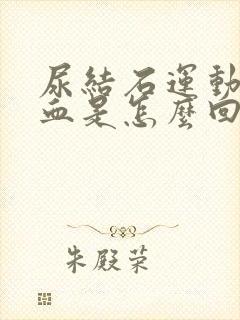 尿結石運動
血是怎麼回
朱殿荣